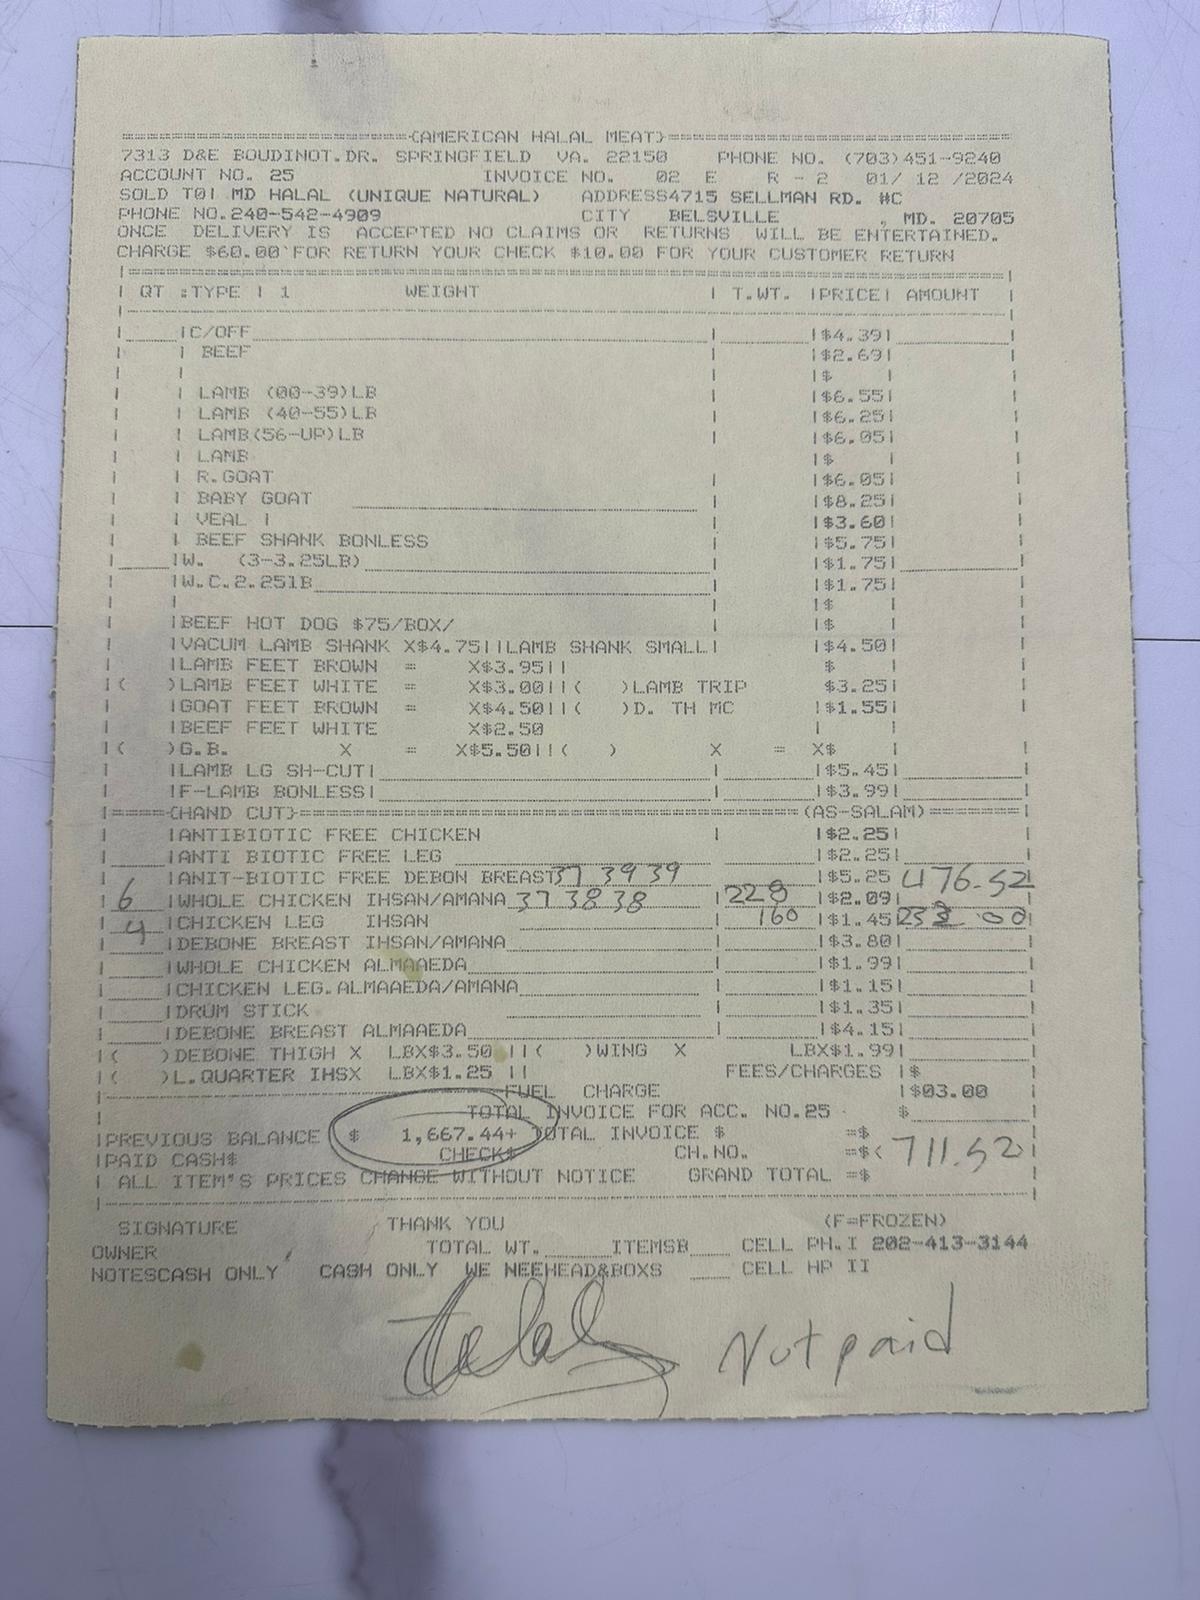 ===={AMERICAN HALAL MEAT}====
7313 D&E BOUDINOT.DR. SPRINGFIELD VA. 22150 PHONE NO. (703)451-9240
ACCOUNT NO. 25 INVOICE NO. 02 E R - 2 01/ 12 /2024
SOLD TO! MD HALAL (UNIQUE NATURAL) ADDRESS4715 SELLMAN RD. #C
PHONE NO.240-542-4909 CITY BELSVILLE , MD. 20705
ONCE DELIVERY IS ACCEPTED NO CLAIMS OR RETURNS WILL BE ENTERTAINED.
CHARGE $60.00 FOR RETURN YOUR CHECK $10.00 FOR YOUR CUSTOMER RETURN
| QT :TYPE | 1 WEIGHT | T.WT. |PRICE| AMOUNT |
|C/OFF | |$4.39|
| BEEF | |$2.69|
|$ |
| LAMB (00-39)LB |$6.55|
| LAMB (40-55)LB |$6.25|
| LAMB(56-UP)LB |$6.05|
| LAMB |$ |
| R.GOAT |$6.05|
| BABY GOAT |$8.25|
| VEAL | |$3.60|
| BEEF SHANK BONLESS |$5.75|
|W. (3-3.25LB) |$1.75|
|W.C.2.25lB |$1.75|
|$ |
|BEEF HOT DOG $75/BOX/ |$ |
|VACUM LAMB SHANK X$4.75||LAMB SHANK SMALL| |$4.50|
|LAMB FEET BROWN = X$3.95|| $ |
|( )LAMB FEET WHITE = X$3.00||( )LAMB TRIP $3.25|
|GOAT FEET BROWN = X$4.50||( )D. TH MC |$1.55|
|BEEF FEET WHITE X$2.50 | |
|( )G.B. X = X$5.50||( ) X = X$
|LAMB LG SH-CUT| |$5.45|
|F-LAMB BONLESS| |$3.99|
|====={HAND CUT}==== (AS-SALAM)====|
|ANTIBIOTIC FREE CHICKEN | |$2.25|
|ANTI BIOTIC FREE LEG |$2.25|
|ANIT-BIOTIC FREE DEBON BREAST 37 39 39 |$5.25 476.52
6 |WHOLE CHICKEN IHSAN/AMANA 37 38 38 |228 |$2.09|
4 |CHICKEN LEG IHSAN | 160 |$1.45| 232 00
|DEBONE BREAST IHSAN/AMANA |$3.80|
|WHOLE CHICKEN ALMAAEDA |$1.99|
|CHICKEN LEG.ALMAAEDA/AMANA |$1.15|
|DRUM STICK |$1.35|
|DEBONE BREAST ALMAAEDA |$4.15|
|( )DEBONE THIGH X LBX$3.50 ||( )WING X LBX$1.99|
|( )L.QUARTER IHSX LBX$1.25 || FEES/CHARGES |$
FUEL CHARGE |$03.00
TOTAL INVOICE FOR ACC. NO.25 $
|PREVIOUS BALANCE $ 1,667.44+ TOTAL INVOICE $ =$
|PAID CASH$ CHECK$ CH.NO. =$< 711.52
| ALL ITEM'S PRICES CHANGE WITHOUT NOTICE GRAND TOTAL =$
SIGNATURE THANK YOU (F=FROZEN)
OWNER TOTAL WT. ITEMSB CELL PH.I 202-413-3144
NOTESCASH ONLY CASH ONLY WE NEEHEAD&BOXS CELL HP II
Not paid